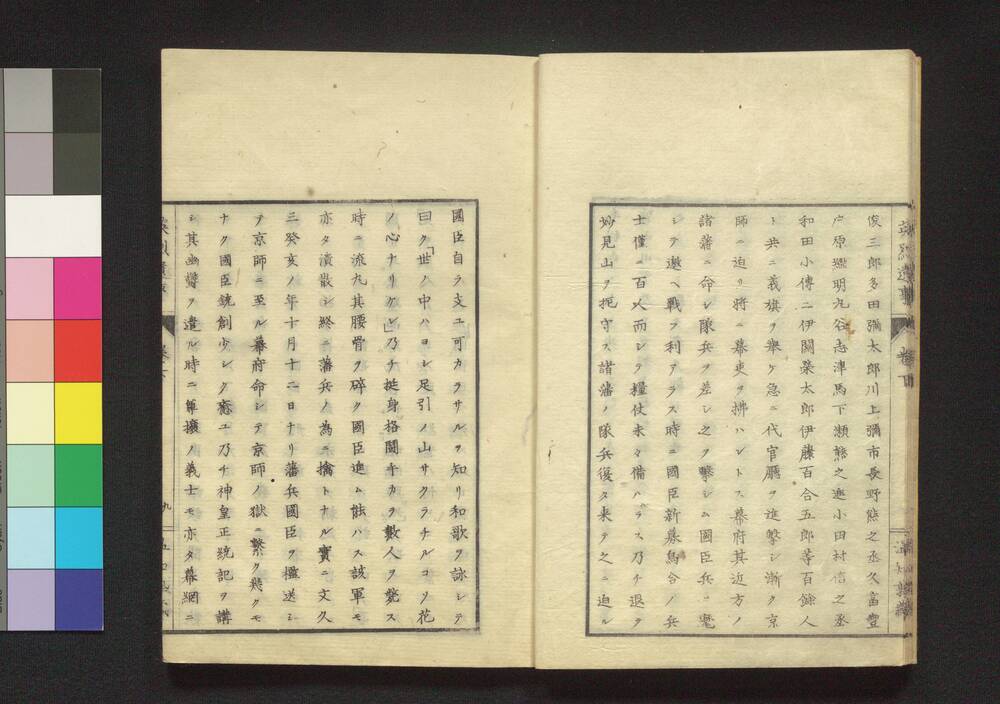 俊三郎多田彌太郎川上彌市長野熊之丞久富豊
戸原繼明九谷志津馬下瀬熊之進小田村信之丞
和田小傳二伊關榮太郎伊藤百合五郎等百餘人
ト共ニ義旗ヲ舉ケ急ニ代官廳ヲ進擊シ漸ク京
師ニ迫リ將ニ幕吏ヲ拂ハントス幕府其近方ノ
諸藩ニ命シ隊兵ヲ差シ之ヲ擊シム國臣兵ニ麾
シテ邀ヘ戰フ利アラス時ニ國臣新募烏合ノ兵
士僅ニ百人而シテ糧仗未タ備ハラス乃チ退テ
妙見山ヲ扼守ス諸藩ノ隊兵復タ來テ之ニ迫ル
國臣自ラ支エ可カラサルヲ知リ和歌ヲ詠シテ
曰ク「世ノ中ハヨシ足引ノ山サクラチルコソ花
ノ心ナリケレ」乃チ挺身格鬪手カラ數人ヲ斃ス
時ニ流丸其腰骨ヲ碎ク國臣進ム能ハス該軍モ
亦タ潰散シ終ニ藩兵ノ為ニ擒トナル實ニ文久
三癸亥ノ年十月十二日ナリ藩兵國臣ヲ檻送シ
テ京師ニ至ル幕府命シテ京師ノ獄ニ繫ク幾クモ
ナク國臣銃創少シク癒ユ乃チ神皇正統記ヲ講
シ其幽鬱ヲ遣ル時ニ尊攘ノ義士モ亦タ幕網ニ